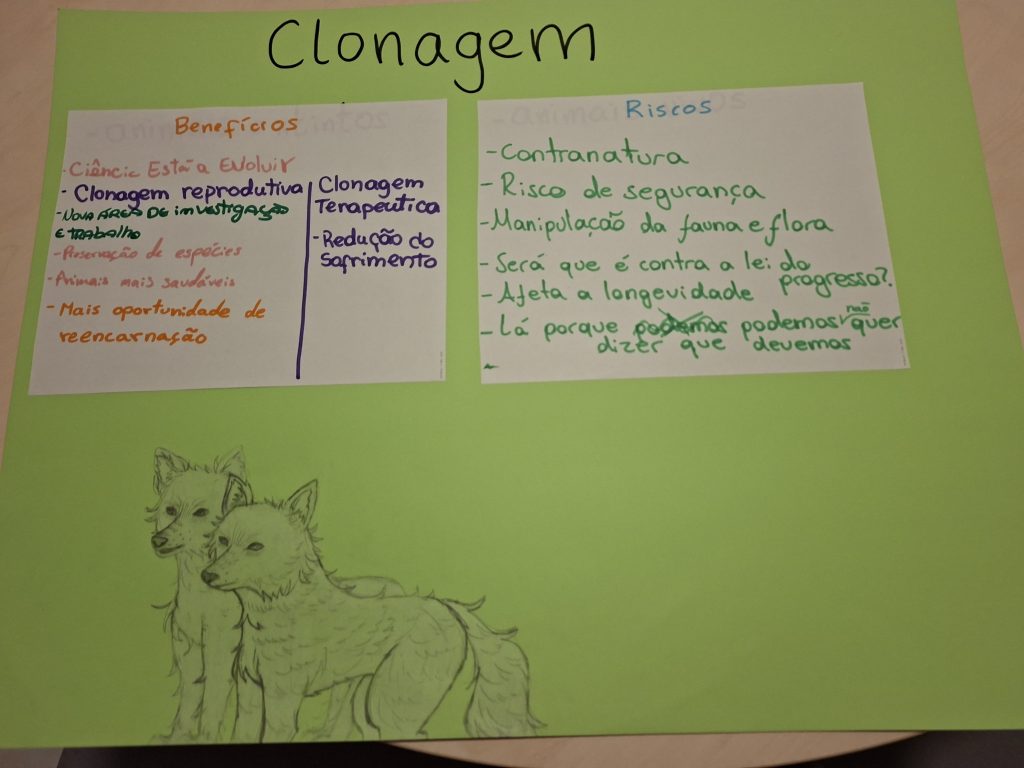 Clonagem
Benefícios
- Ciência Está a Evoluir
- Clonagem reprodutiva
- Nova área de investigação
e trabalho
- Preservação de espécies
- Animais mais saudáveis
- Mais oportunidade de
reencarnação
Clonagem
Terapeutica
- Redução do
Sofrimento
Riscos
- Contranatura
- Risco de segurança
- Manipulação da fauna e flora
- Será que é contra a lei do
progresso?
- Afeta a longevidade
- Lá porque podemos podemos não quer
dizer que devemos